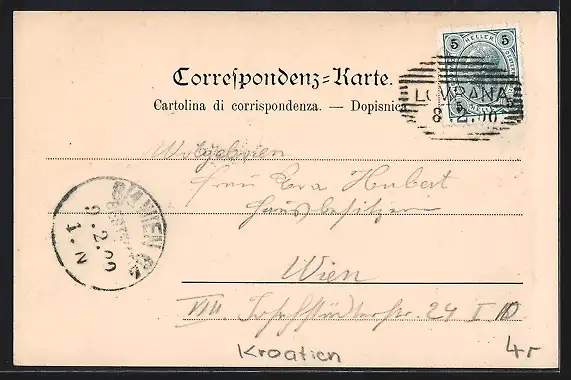 5 HELLER 5
Correſpondenz-Karte.
Cartolina di corrispondenza. — Dopisnica.
LOVRANA
8.2.00
Frau Eva Hubert
Hausbesitzerin
WIEN
9.2.00
1.N
Wien
VIII. Josefstädterstr. 24 I 10
Kroatien
4r